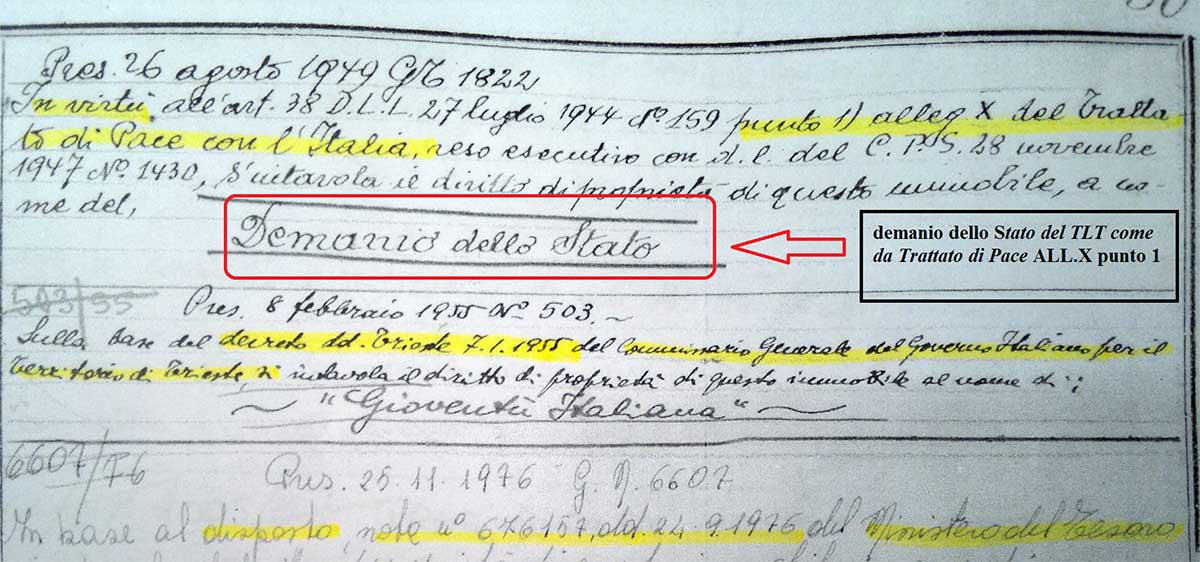 Pres. 26 agosto 1949 GN 1822
In virtù all'art. 38 D.L.L. 27 luglio 1944 Nº 159 punto 1) alleg X del Tratta
to di Pace con l'Italia, reso esecutivo con d.l. del C.P.S. 28 novembre
1947 Nº 1430, s'intavola il diritto di proprietà di questo immobile, a no-
me del,
Demanio dello Stato
demanio dello Stato del TLT come
da Trattato di Pace ALL.X punto 1
503/55
Pres. 8 febbraio 1955 Nº 503.~
Sulla base del decreto dd. Trieste 7.1.1955 del Commissario Generale del Governo Italiano per il
Territorio di Trieste, si intavola il diritto di proprietà di questo immobile al nome di:
~ "Gioventù Italiana" ~
6607/76
Pres. 25.11.1976 G.N. 6607
In base al disposto, note nº 676157, dd. 24.9.1976 del Ministero del Tesoro